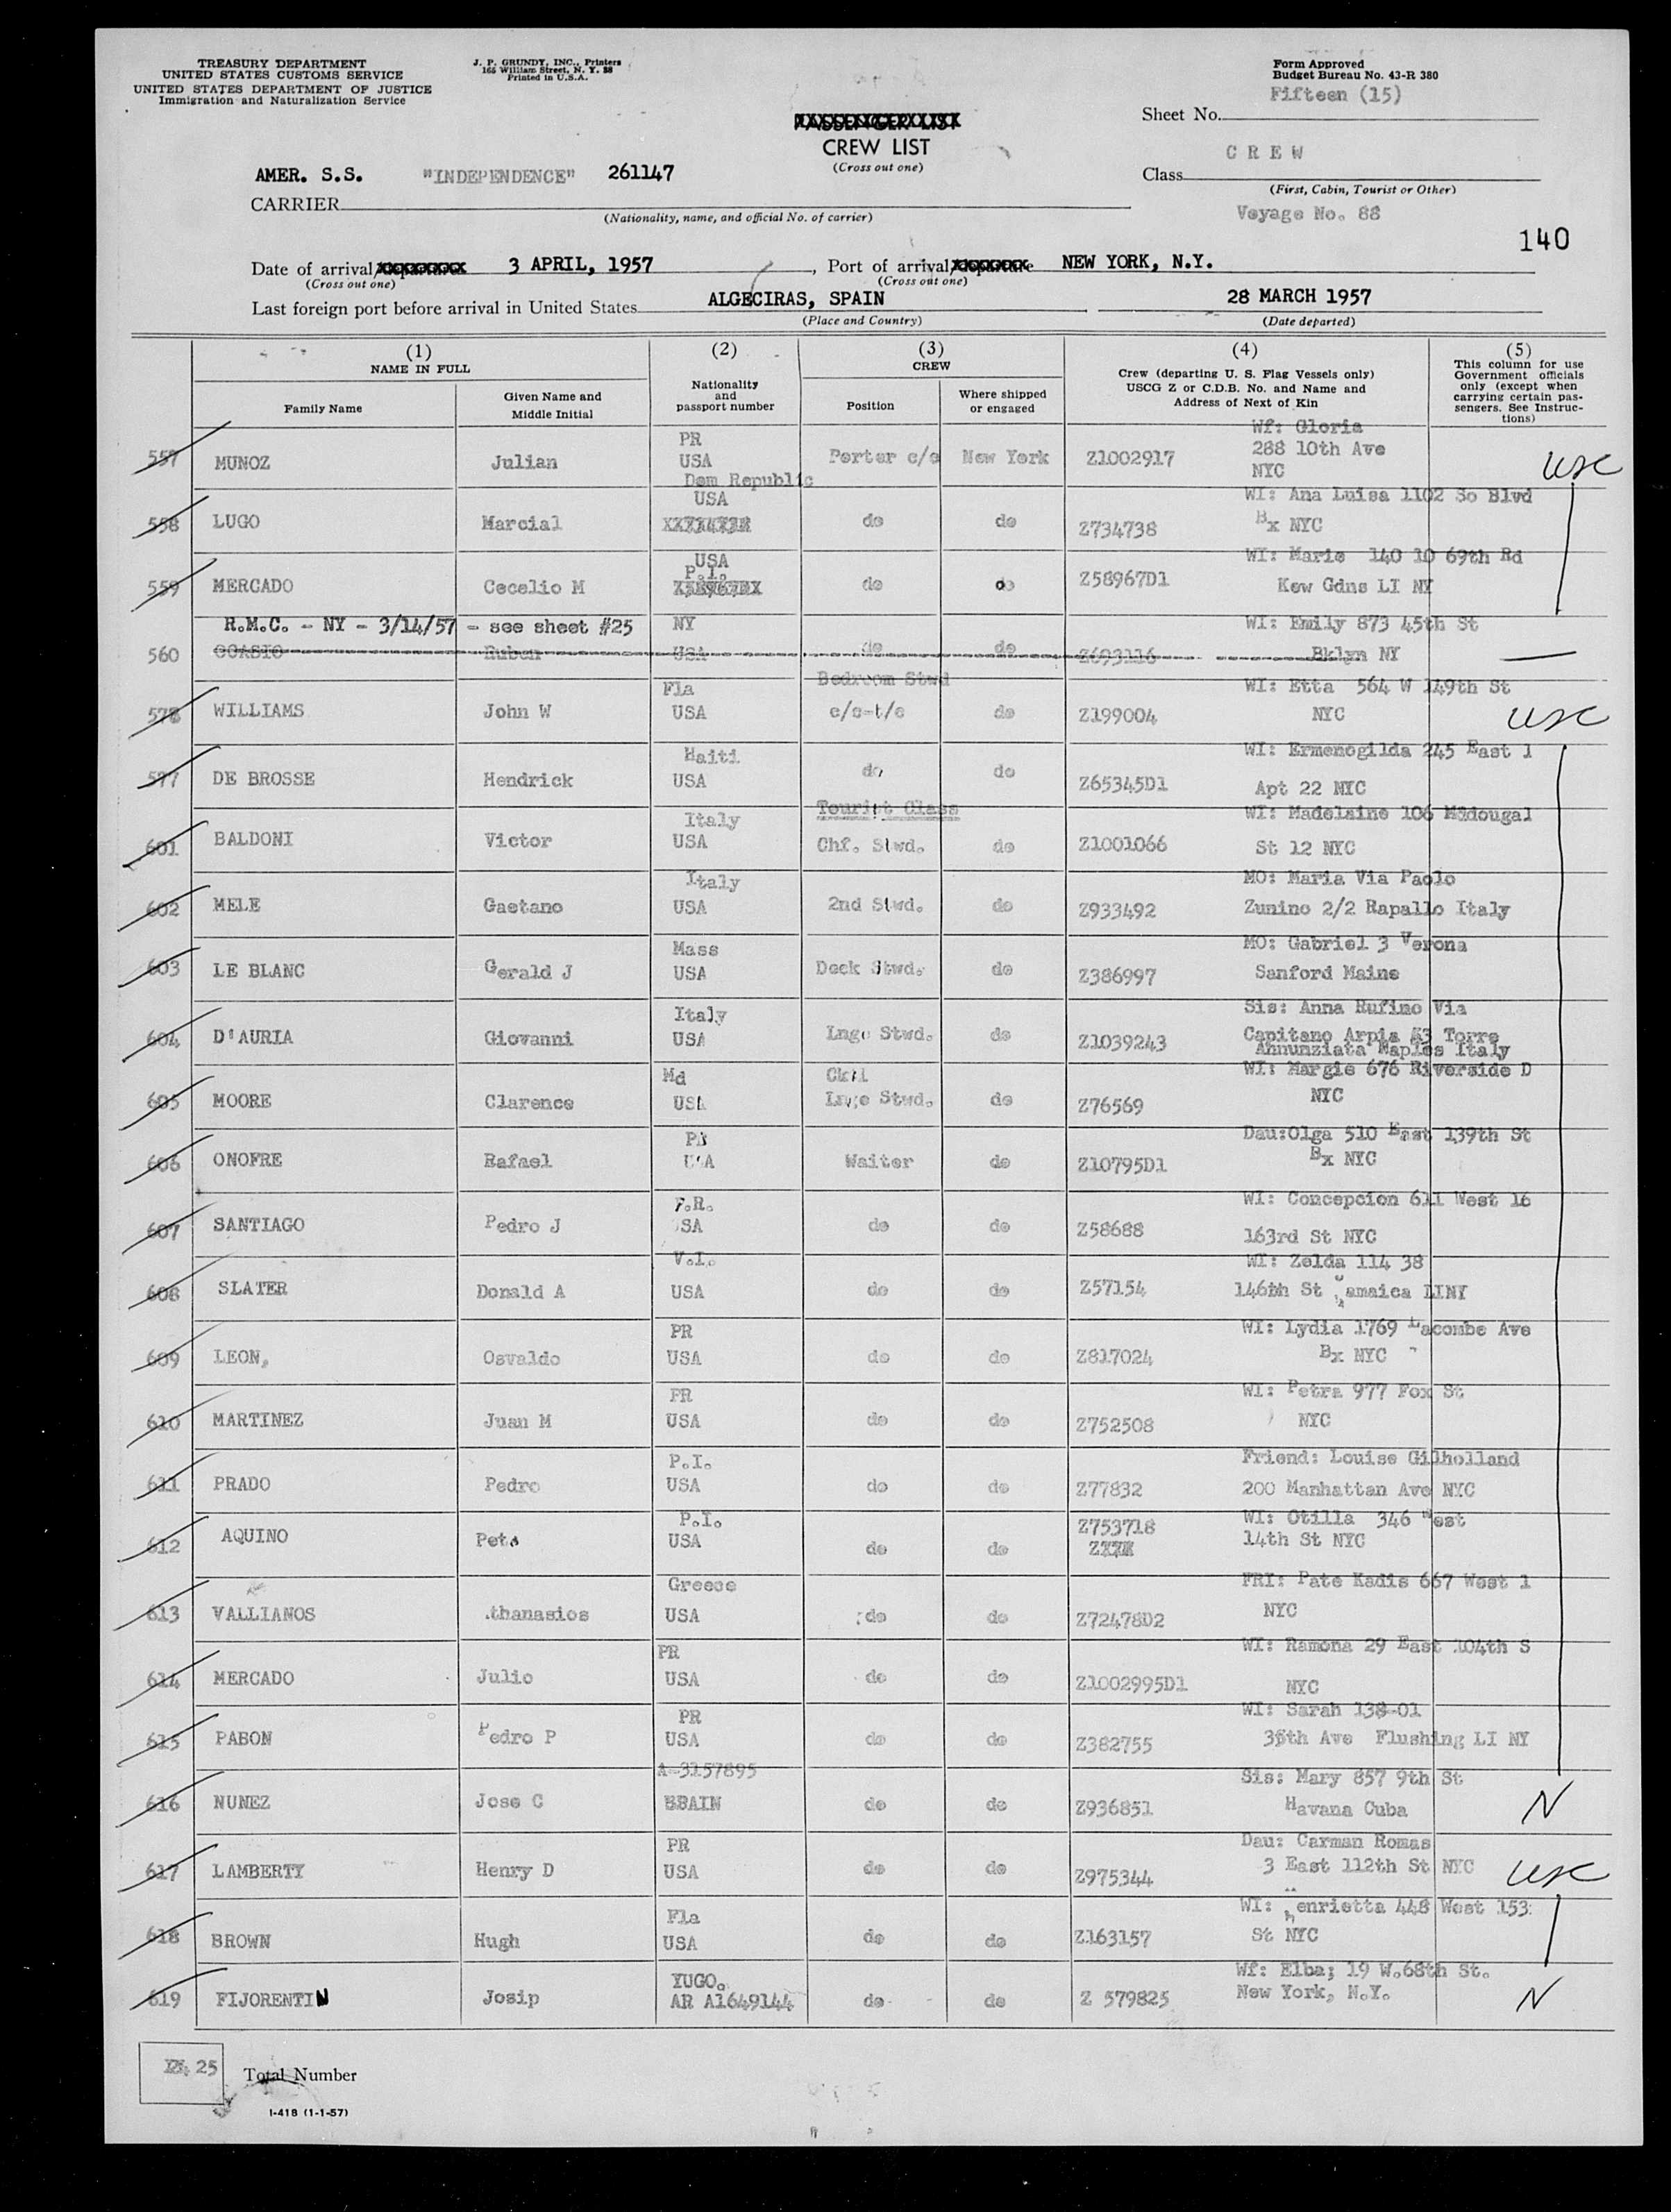 TREASURY DEPARTMENT
UNITED STATES CUSTOMS SERVICE
UNITED STATES DEPARTMENT OF JUSTICE
Immigration and Naturalization Service
J. P. GRUNDY, INC., Printers
165 William Street, N. Y. 38
Printed in U.S.A.
Form Approved
Budget Bureau No. 43-R 380
Fifteen (15)
Sheet No.
PASSENGER LIST
CREW LIST
(Cross out one)
C R E W
Class
(First, Cabin, Tourist or Other)
AMER. S.S. "INDEPENDENCE" 261147
CARRIER
(Nationality, name, and official No. of carrier)
Voyage No. 88
140
Date of arrival/departure 3 APRIL, 1957, Port of arrival/departure NEW YORK, N.Y.
(Cross out one) (Cross out one)
Last foreign port before arrival in United States ALGECIRAS, SPAIN 28 MARCH 1957
(Place and Country) (Date departed)
(1) NAME IN FULL
Family Name
Given Name and Middle Initial
(2) Nationality and passport number
(3) CREW
Position
Where shipped or engaged
(4) Crew (departing U. S. Flag Vessels only) USCG Z or C.D.B. No. and Name and Address of Next of Kin
(5) This column for use Government officials only (except when carrying certain passengers. See Instructions)
557 MUNOZ Julian PR USA Porter c/c New York Z1002917 Wf: Gloria 288 10th Ave NYC USC
558 LUGO Marcial Dom Republic USA do do Z734738 WI: Ana Luisa 1102 So Blvd Bx NYC
559 MERCADO Cecelio M USA P.I. do do Z58967D1 WI: Marie 140 10 69th Rd Kew Gdns LI NY
R.M.C. - NY - 3/14/57 - see sheet #25
560 COASIO Ruben NY USA do do Z693116 WI: Emily 873 45th St Bklyn NY
578 WILLIAMS John W Fla USA Bedroom Stwd c/c-t/c do Z199004 WI: Etta 564 W 149th St NYC USC
577 DE BROSSE Hendrick Haiti USA do do Z65345D1 WI: Ermenogilda 245 East 1 Apt 22 NYC
601 BALDONI Victor Italy USA Tourist Class Chf. Stwd. do Z1001066 WI: Madelaine 106 Mcdougal St 12 NYC
602 MELE Gaetano Italy USA 2nd Stwd. do Z933492 MO: Maria Via Paolo Zunino 2/2 Rapallo Italy
603 LE BLANC Gerald J Mass USA Deck Stwd. do Z386997 MO: Gabriel 3 Verona Sanford Maine
604 D'AURIA Giovanni Italy USA Lnge Stwd. do Z1039243 Sis: Anna Rufino Via Capitano Arpia 53 Torre Annunziata Naples Italy
605 MOORE Clarence Md USA Cktl Lnge Stwd. do Z76569 WI: Margie 676 Riverside D NYC
606 ONOFRE Rafael PR USA Waiter do Z10795D1 Dau:Olga 510 East 139th St Bx NYC
607 SANTIAGO Pedro J P.R. USA do do Z58688 WI: Concepcion 611 West 16 163rd St NYC
608 SLATER Donald A V.I. USA do do Z57154 WI: Zelda 114 38 146th St Jamaica LINY
609 LEON, Osvaldo PR USA do do Z817024 WI: Lydia 1769 Lacombe Ave Bx NYC
610 MARTINEZ Juan M PR USA do do Z752508 WI: Petra 977 Fox St NYC
611 PRADO Pedro P.I. USA do do Z77832 Friend: Louise Gilholland 200 Manhattan Ave NYC
612 AQUINO Pete P.I. USA do do Z753718 WI: Otilla 346 West 14th St NYC
613 VALLIANOS thanasios Greece USA do do Z72478D2 FRI: Pate Kadis 667 West 1 NYC
614 MERCADO Julio PR USA do do Z1002995D1 WI: Ramona 29 East 104th S NYC
615 PABON Pedro P PR USA do do Z382755 WI: Sarah 138-01 35th Ave Flushing LI NY
616 NUNEZ Jose C A-3157895 do do Z936851 Sis: Mary 857 9th St Havana Cuba N
617 LAMBERTY Henry D PR USA do do Z975344 Dau: Carman Romas 3 East 112th St NYC USC
618 BROWN Hugh Fla USA do do Z163157 WI: henrietta 448 West 153 St NYC
619 FIJORENTIN Josip YUGO. AR A1649144 do do Z 579825 Wf: Elba; 19 W.68th St. New York, N.Y. N
25 Total Number
I-418 (1-1-57)